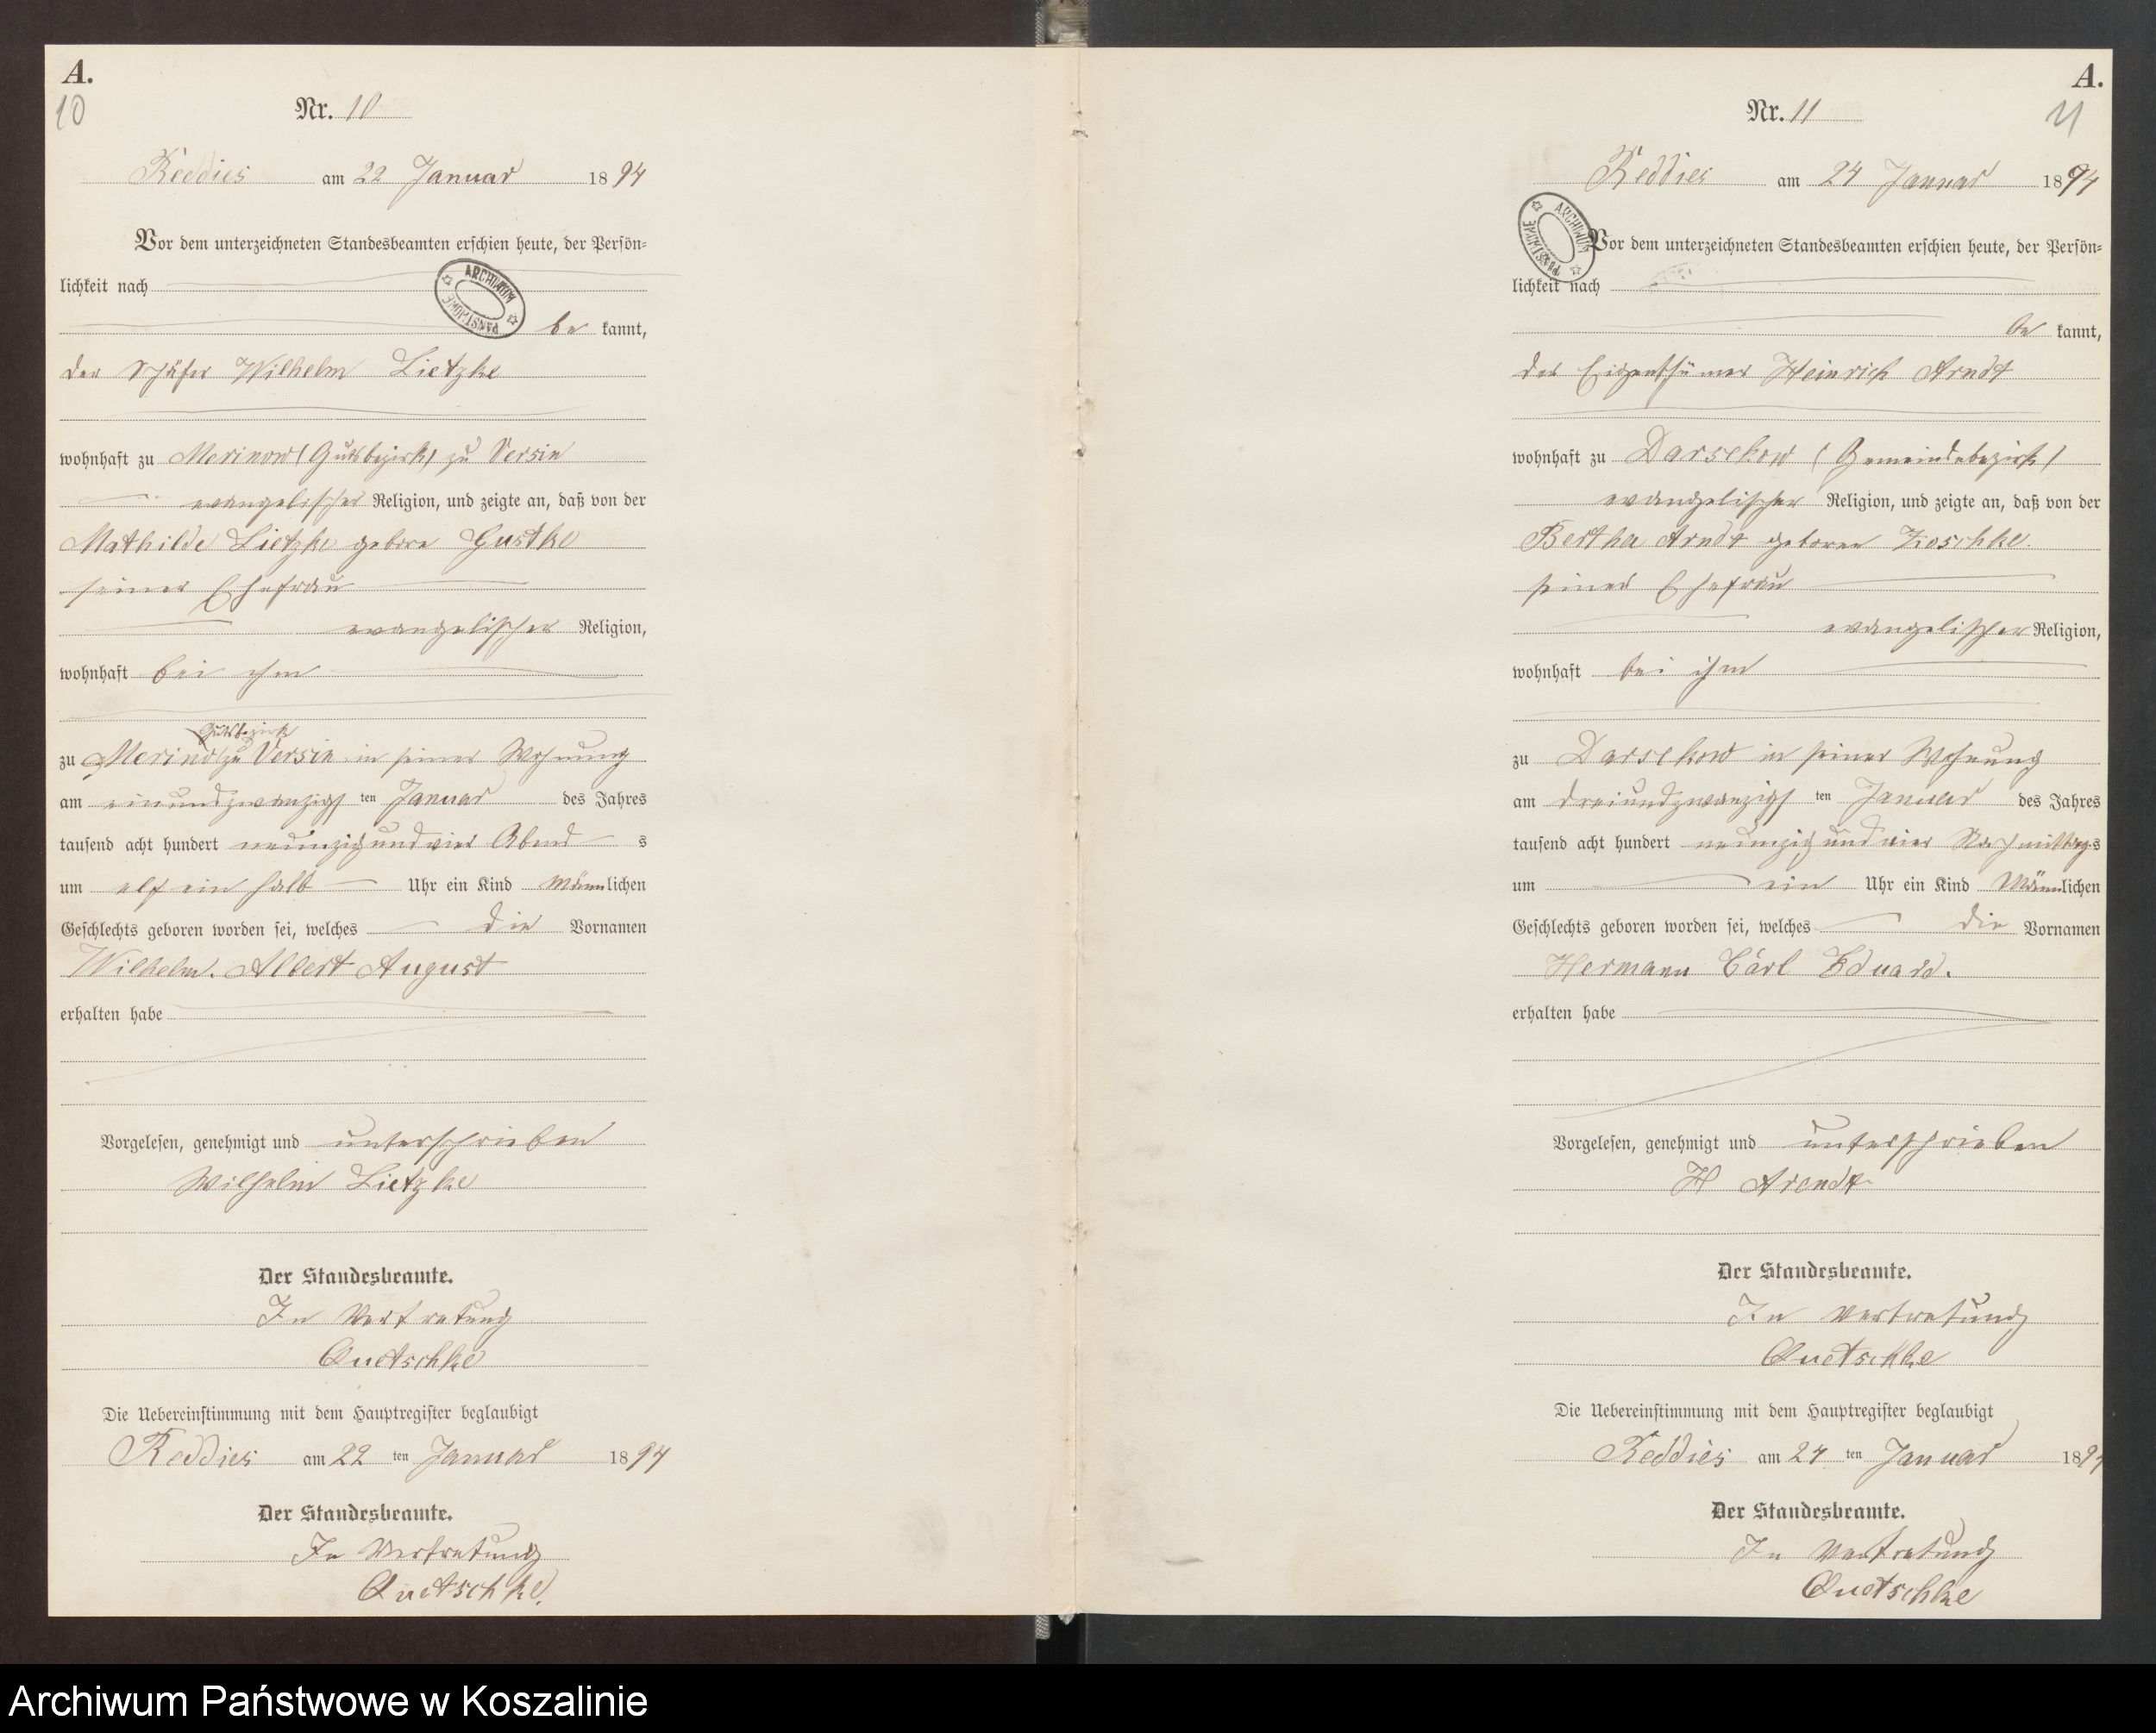 A.
10
Nr. 10
Reddies am 22 Januar 1894
Vor dem unterzeichneten Standesbeamten erschien heute, der Persön-
lichkeit nach
ARCHIWUM PAŃSTWOWE
be kannt,
der Schäfer Wilhelm Lietzke
wohnhaft zu Merinow (Gutsbezirk) zu Versin
evangelischer Religion, und zeigte an, daß von der
Mathilde Lietzke geborene Gustke
seiner Ehefrau
evangelischer Religion,
wohnhaft bei ihm
Gutsbezirk
zu Merinow zu Versin in seiner Wohnung
am einundzwanzigsten Januar des Jahres
tausend acht hundert neunzig und vier Abend s
um elf ein halb Uhr ein Kind männlichen
Geschlechts geboren worden sei, welches die Vornamen
Wilhelm. Albert August
erhalten habe
Vorgelesen, genehmigt und unterschrieben
Wilhelm Lietzke
Der Standesbeamte.
In Vertretung
Quetschke
Die Uebereinstimmung mit dem Hauptregister beglaubigt
Reddies am 22 ten Januar 1894
Der Standesbeamte.
In Vertretung
Quetschke.
A.
11
Nr. 11
Reddies am 24 Januar 1894
ARCHIWUM PAŃSTWOWE
Vor dem unterzeichneten Standesbeamten erschien heute, der Persön-
lichkeit nach
be kannt,
der Eigenthümer Heinrich Arndt
wohnhaft zu Darsekow (Gemeindebezirk)
evangelischer Religion, und zeigte an, daß von der
Bertha Arndt geboren Koschke.
seiner Ehefrau
evangelischer Religion,
wohnhaft bei ihm
zu Darsekow in seiner Wohnung
am dreiundzwanzigsten Januar des Jahres
tausend acht hundert neunzig und vier Nachmittags
um ein Uhr ein Kind männlichen
Geschlechts geboren worden sei, welches die Vornamen
Hermann Carl Eduard.
erhalten habe
Vorgelesen, genehmigt und unterschrieben
H Arendt
Der Standesbeamte.
In Vertretung
Quetschke
Die Uebereinstimmung mit dem Hauptregister beglaubigt
Reddies am 24 ten Januar 1894
Der Standesbeamte.
In Vertretung
Quetschke
Archiwum Państwowe w Koszalinie